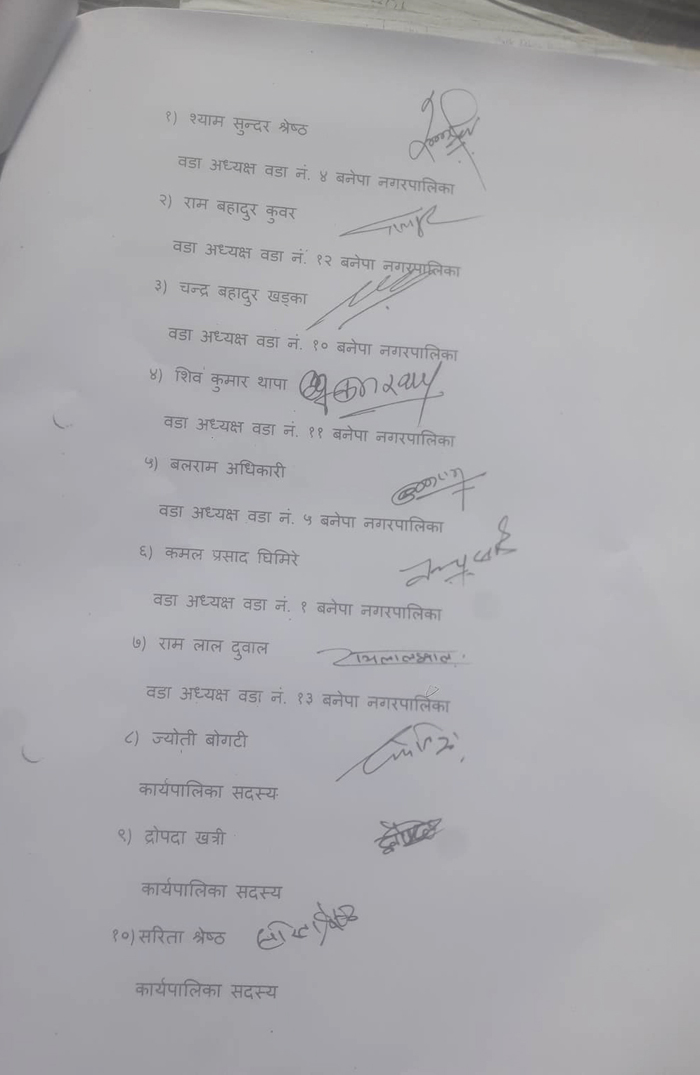 १) श्याम सुन्दर श्रेष्ठ
वडा अध्यक्ष वडा नं. ४ बनेपा नगरपालिका
२) राम बहादुर कुवर
वडा अध्यक्ष वडा नं. १२ बनेपा नगरपालिका
३) चन्द्र बहादुर खड्का
वडा अध्यक्ष वडा नं. १० बनेपा नगरपालिका
४) शिव कुमार थापा
वडा अध्यक्ष वडा नं. ११ बनेपा नगरपालिका
५) बलराम अधिकारी
वडा अध्यक्ष वडा नं. ५ बनेपा नगरपालिका
६) कमल प्रसाद घिमिरे
वडा अध्यक्ष वडा नं. १ बनेपा नगरपालिका
७) राम लाल दुवाल
वडा अध्यक्ष वडा नं. १३ बनेपा नगरपालिका
८) ज्योती बोगटी
कार्यपालिका सदस्य
९) द्रोपदा खत्री
कार्यपालिका सदस्य
१०) सरिता श्रेष्ठ
कार्यपालिका सदस्य